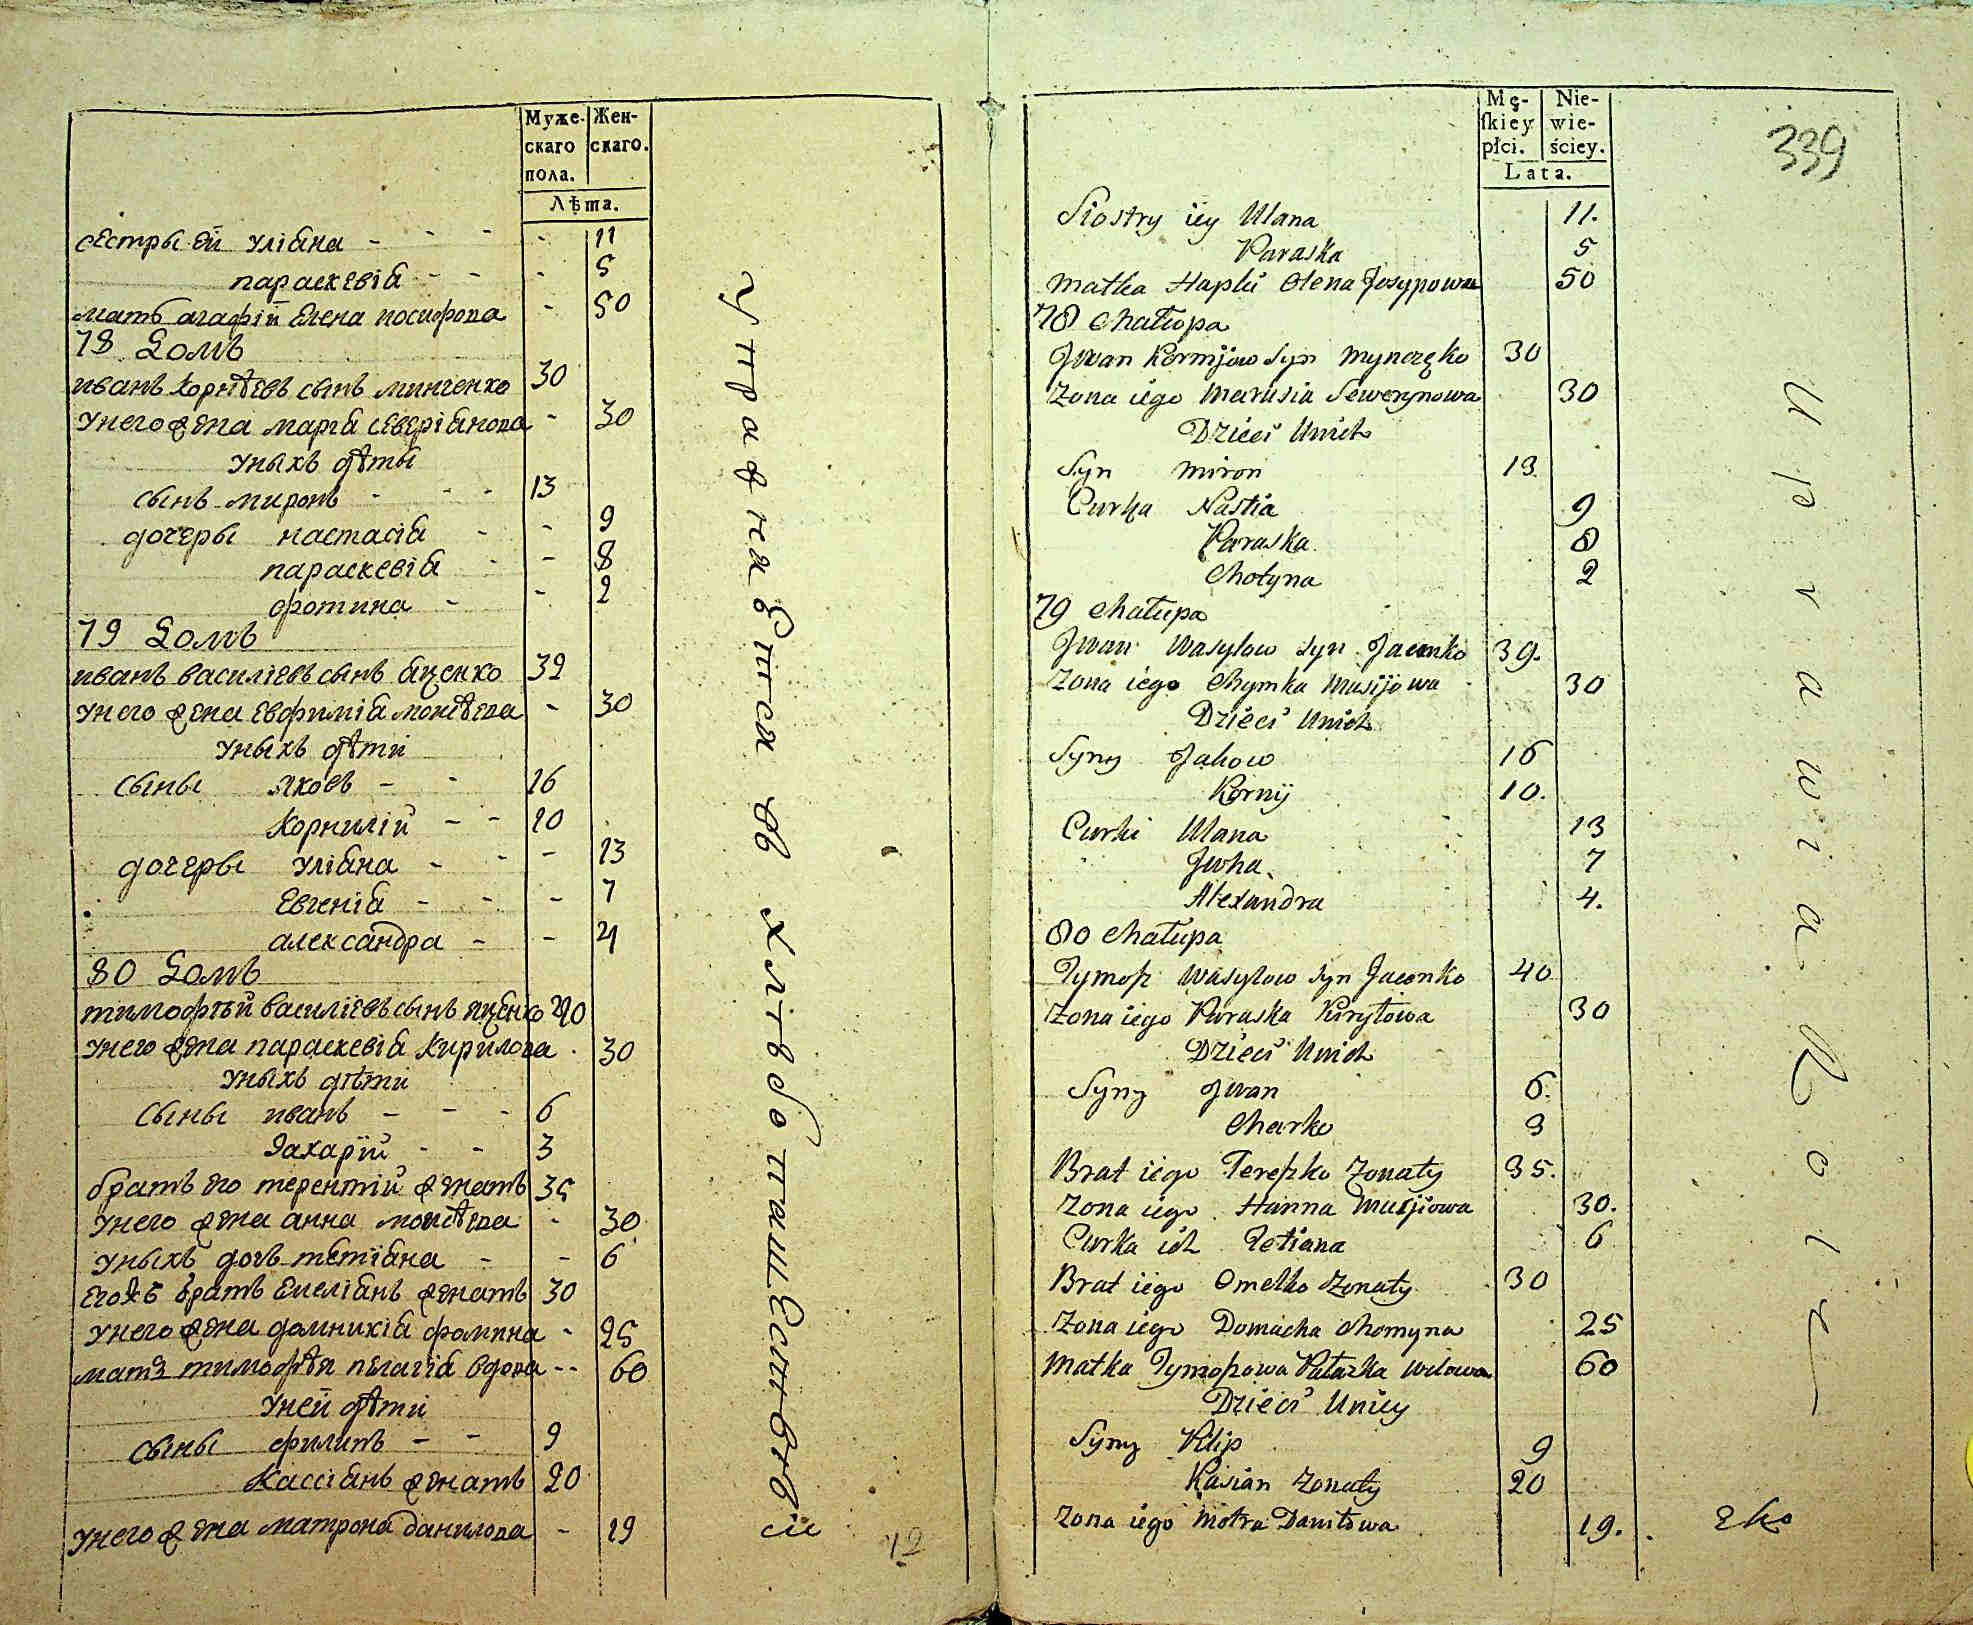 Муже-
скаго
пола.
Жен-
скаго.
Лѣта.
сестры ей уліана - - - - 11
параскевіа - - - 5
мать агафіи Елена иосифова - 50
78 Домъ
иванъ корнѣевъ сынъ минченко 30
унего жена маріа северіанова - 30
уныхъ дѣти
сынъ миронъ - - - 13
дочеры настасіа - - 9
параскевіа - - 8
фотина - - 2
79 Домъ
иванъ василіевъ сынъ яценко 39
унего жена евфиміа моисѣева - 30
уныхъ дѣти
сыны яковъ - - 16
корнилій - - 10
дочеры уліана - - - 13
Евгеніа - - - 7
александра - - 4
80 Домъ
тимофѣй василіевъ сынъ яценко 40
унего жена параскевіа кирилова . 30
уныхъ дѣти
сыны иванъ - - - 6
Захарій - - 3
братъ его терентій женатъ 35
унего жена анна моисѣева - 30
уныхъ дочь татіана - - 6
егожъ братъ Емеліанъ женатъ 30
унего жена домникіа фомина - 25
мать тимофѣя пелагіа вдова -- 60
уней дѣти
сыны филипъ - - 9
Кассіанъ женатъ 20
унего жена матрона данилова - 19
Упражняется въ хлѣбопашествѣ
сіи
12
Mę-
ſkiey
płci.
Nie-
wie-
ściey.
Lata.
339
Siostry iey Ulana 11.
Paraska 5
Matka Hapki Olena Josypowa 50
78 Chałupa
Jwan Kornijow Syn Mynczęko 30
Zona iego Marusia Sewerynowa 30
Dzieci Unich
Syn Miron 13
Curka Nastia 9
Paraska 8
Chotyna 2
79 Chałupa
Jwan Wasylow Syn Jacenko 39.
Zona iego Chymka Musijowa 30
Dzieci Unich
Syny Jakow 16
Kornij 10.
Curki Ulana 13
Jwha 7
Alexandra 4.
80 Chałupa
Tymosz Wasylow Syn Jacenko 40
Zona iego Paraska Kiryłowa 30
Dzieci Unich
Syny Jwan 6.
Charko 3
Brat iego Tereszko Zonaty 35.
Zona iego Hanna Musijowa 30.
Curka ich Tetiana 6
Brat iego Omelko Zonaty 30
Zona iego Domacha Chomyna 25
Matka Tymoszowa Pałazka Wdowa 60
Dzieci Uniey
Syny Pilip 9
Kasian Zonaty 20
Zona iego Motra Daniłowa 19.
Uprawia Rolę